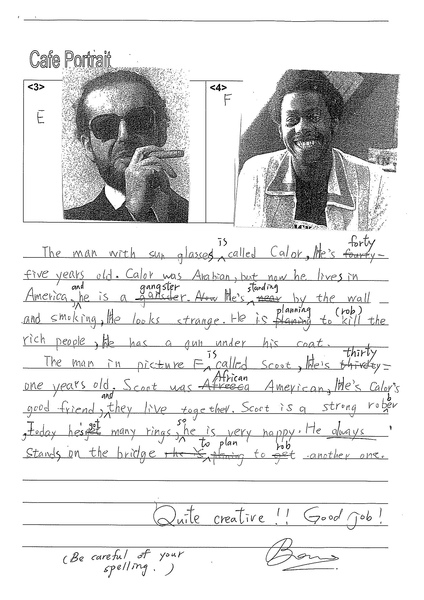 Cafe Portrait
<3>
<4>
E
F
The man with sun glasses is called Calor, He's fourty forty-
five years old. Calor was Arabian, but now he lives in
America, and he is a gangster. Now He's near standing by the wall
and smoking, He looks strange. He is planing planning to kill (rob) the
rich people, He has a gun under his coat.
The man in picture F is called Scoot, He's thirdty thirty-
one years old. Scoot was African American, He's Calor's
good friend, and they live together. Scoot is a strong robber
, Today he's got many rings, so he is very happy. He always
stands on the bridge to plan to get rob another one.
Quite creative!! Good job!
(Be careful of your
spelling.)